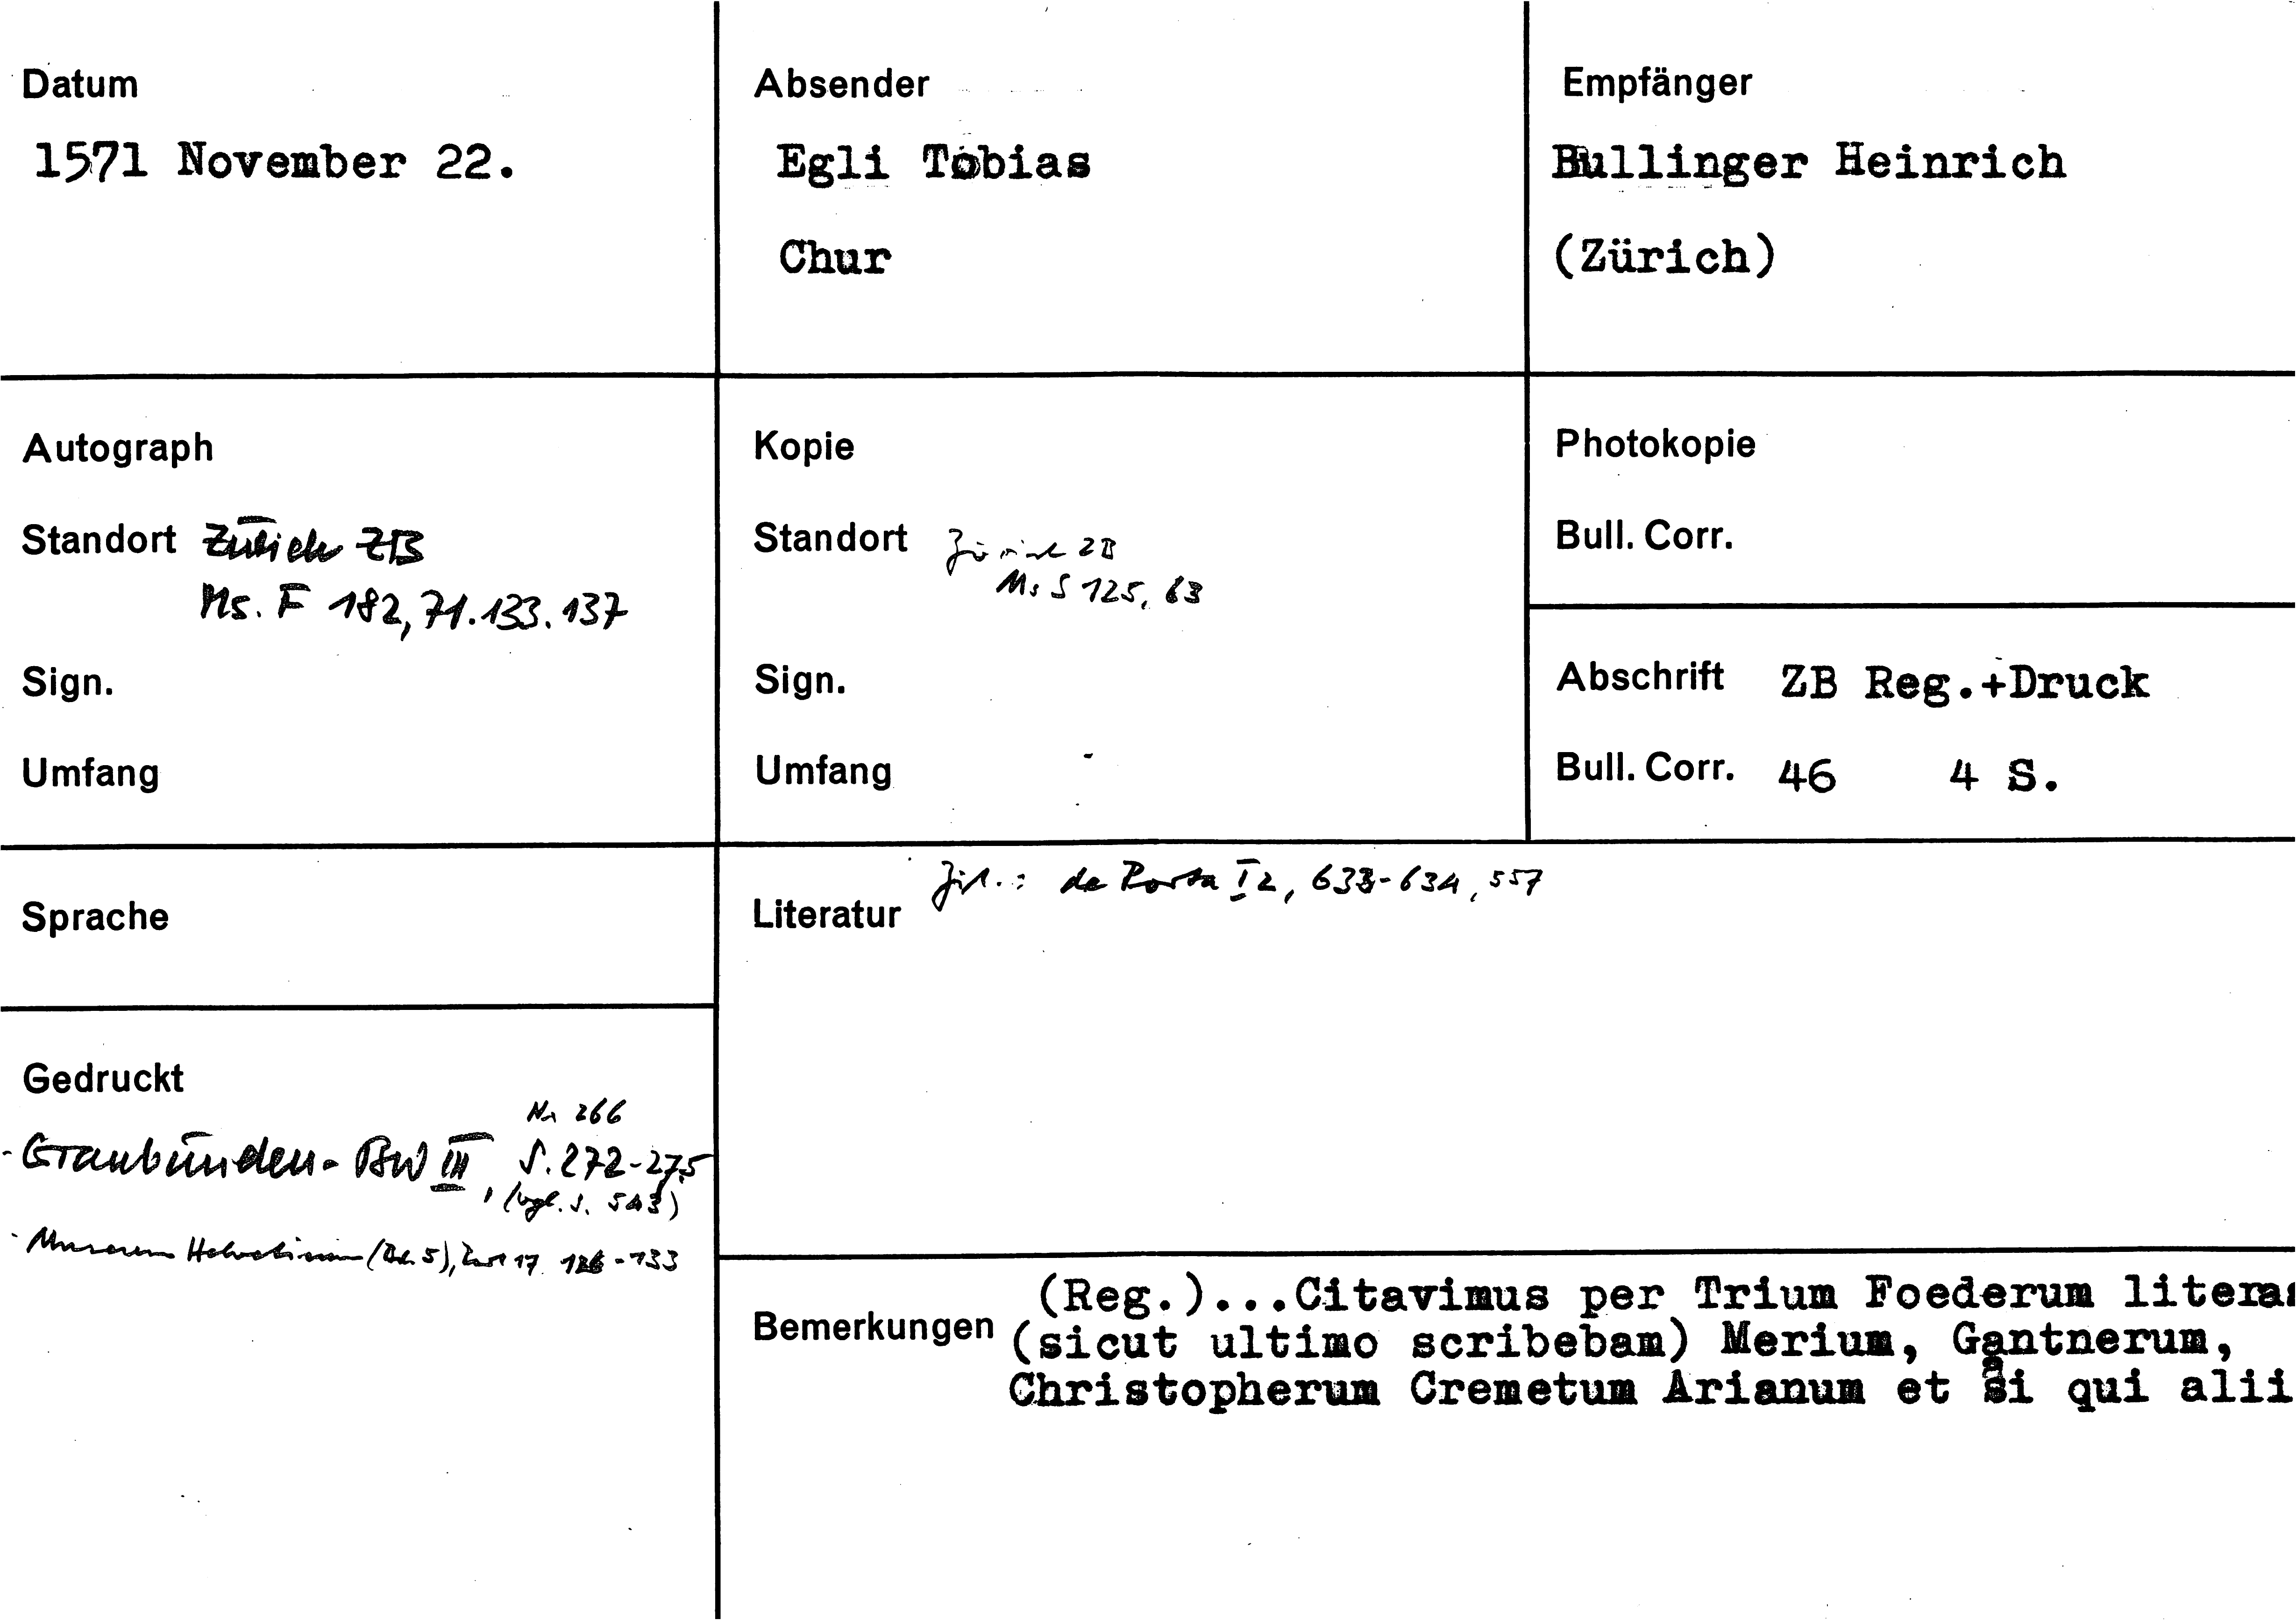 Datum
1571 November 22.
Absender
Egli Tobias
Chur
Empfänger
Bullinger Heinrich
(Zürich)
Autograph
Standort Zürich ZB
Ms. F 182, 71.133.137
Sign.
Umfang
Kopie
Standort Zürich ZB
Ms S 125, 63
Sign.
Umfang
Photokopie
Bull. Corr.
Abschrift ZB Reg.+Druck
Bull. Corr. 46 4 S.
Sprache
Zit.: de Porta I 2, 633-634, 557
Literatur
Gedruckt
Nr 266
- Graubünden-BW III, S. 272-275
(vgl. S. 543)
- Museum Helveticum (Bd. 5), 17 126-133
(Reg.)...Citavimus per Trium Foederum literas
Bemerkungen (sicut ultimo scribebam) Merium, Gantnerum,
Christopherum Cremetum Arianum et si qui alii